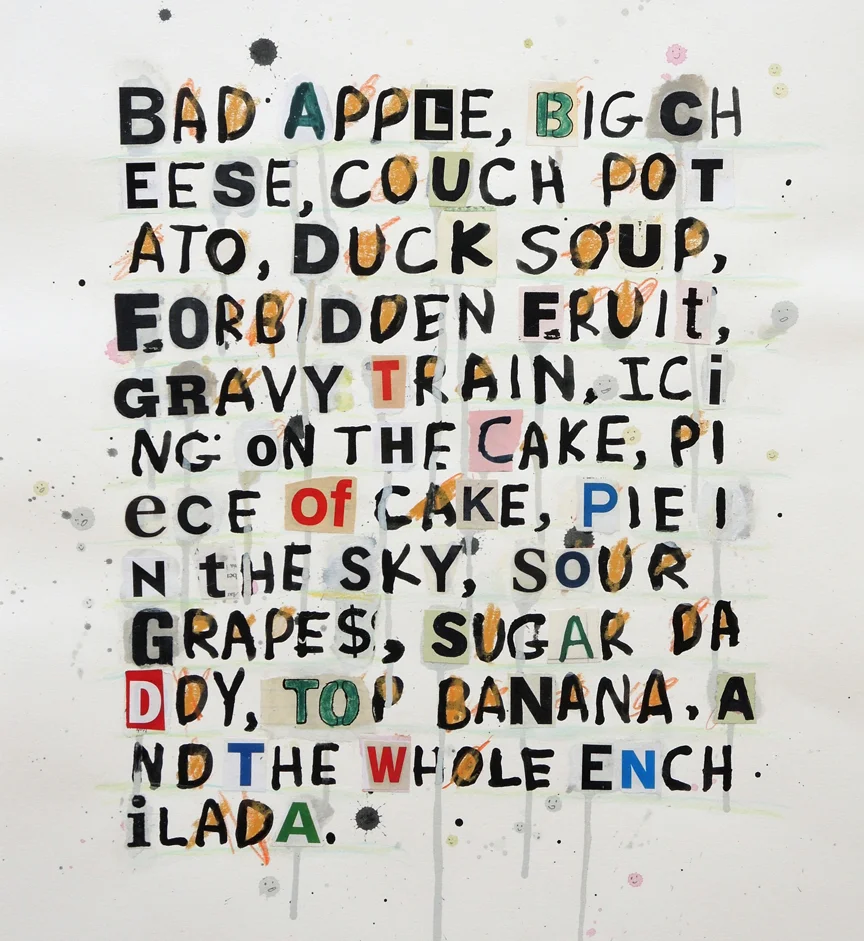 BAD APPLE, BIG CH
EESE, COUCH POT
ATO, DUCK SOUP,
FORBIDDEN FRUIt,
GRAVY TRAIN, ICi
NG oN THE CAKE, PI
eCE Of CAKE, PIE I
N tHE SKY, SOUR
GRAPE$, SUGAR DA
DDY, TOP BANANA, A
ND THE WHOLE ENCH
iLADA.